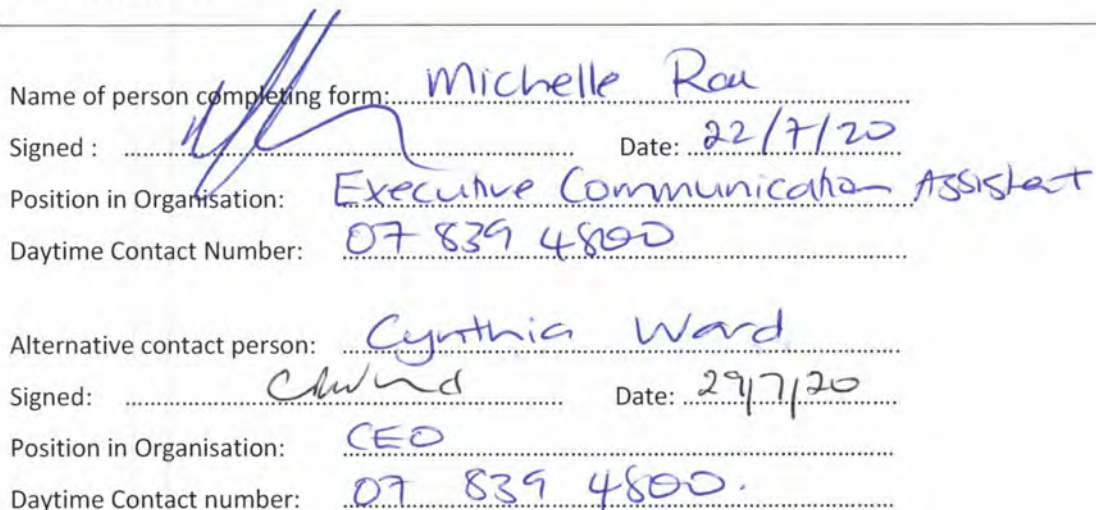 Name of person completing form: Michelle Rau
Signed : Date: 22/7/20
Position in Organisation: Executive Communication Assistant
Daytime Contact Number: 07 839 4800
Alternative contact person: Cynthia Ward
Signed: CWard Date: 29/7/20
Position in Organisation: CEO
Daytime Contact number: 07 839 4800.